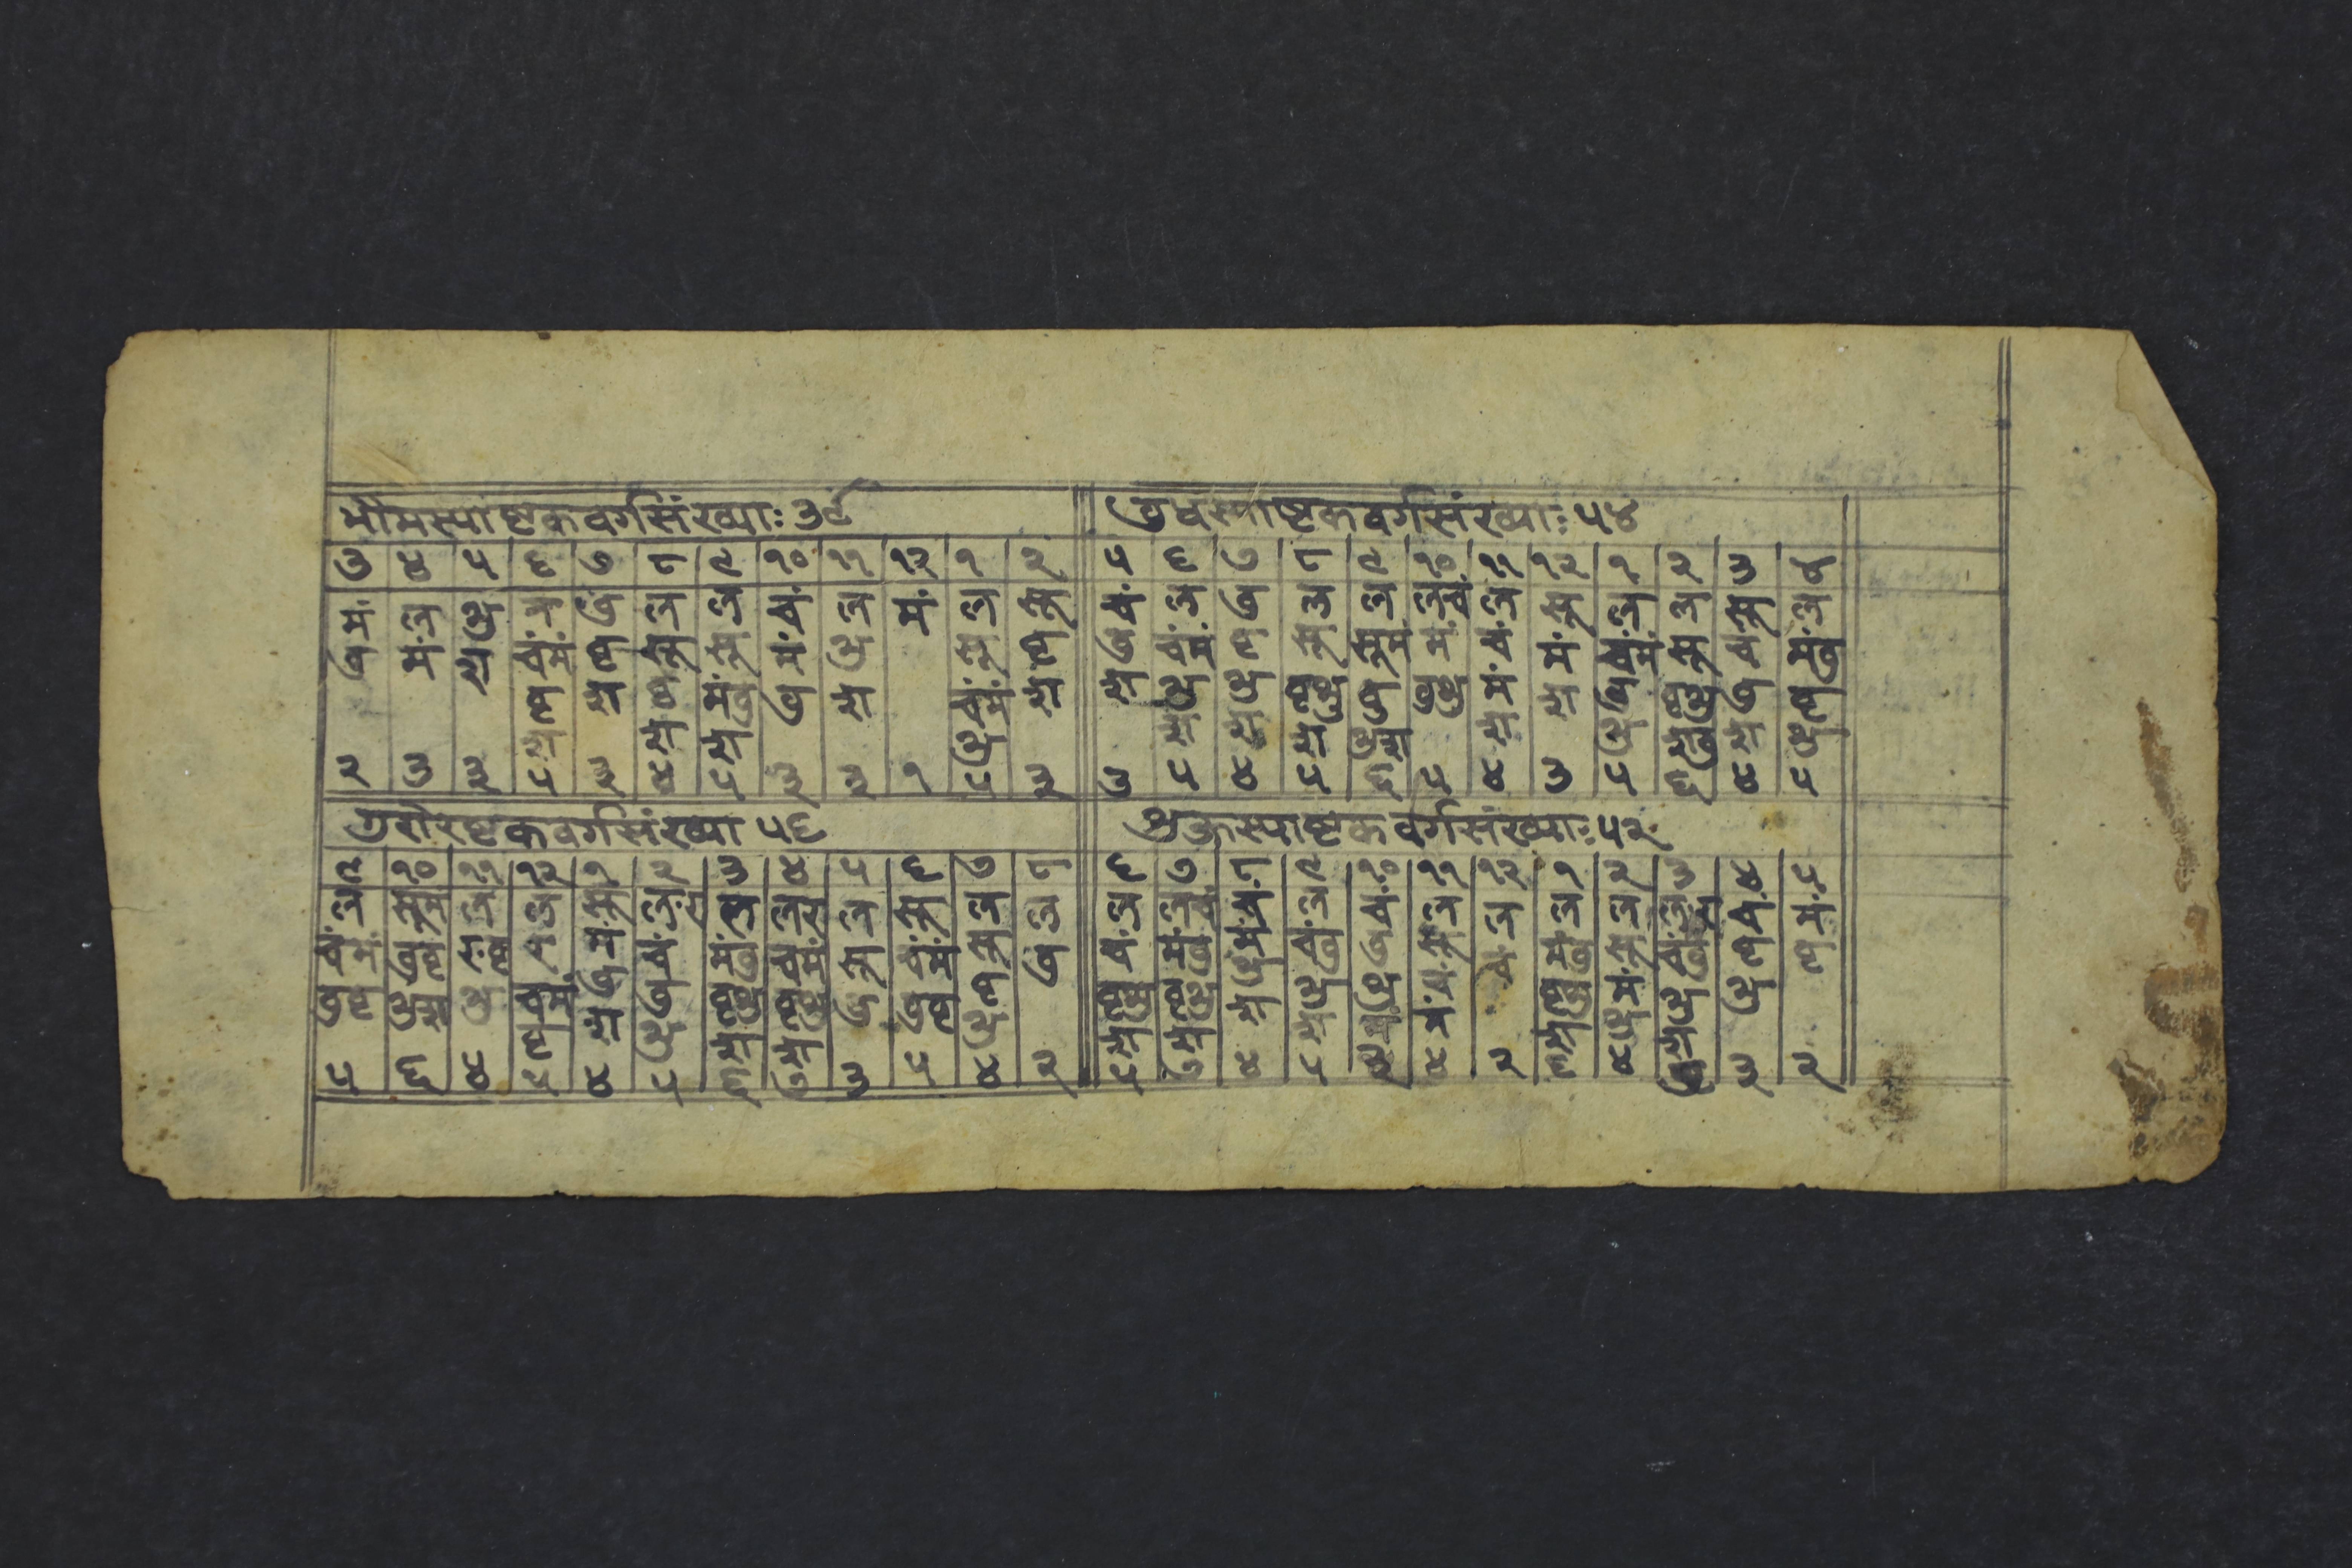 भौमस्याष्टकवर्गसंख्याः ३९
३ ४ ५ ६ ७ ८ ९ १० ११ १२ १ २
मं ल शु ल बु ल ल चं ल मं ल सू
बु मं रा चं मं बृ सू सू मं शु सू बृ
बृ रा बृ मं बु बु रा चं मं रा
रा रा रा शु
२ ३ २ ५ ३ ४ ५ ३ ३ १ ५ ३
बुधस्याष्टकवर्गसंख्याः ५४
५ ६ ७ ८ ९ १० ११ १२ १ २ ३ ४
चं ल बु ल ल ल चं ल सू ल ल सू ल
बु चं मं बृ सू सू मं मं चं मं चं मं सू चं मं बु
रा शु शु बृ शु बु बु शु मं रा बु बृ शु बु बृ
रा रा रा शु रा रा शु रा बु रा शु
३ ५ ४ ५ ६ ५ ४ ३ ५ ६ ४ ५
गुरोरष्टकवर्गसंख्या ५६
९ १० ११ १२ १ २ ३ ४ ५ ६ ७ ८
ल सू मं ल ल सू ल र ल ल र ल सू ल ल
चं मं बु बृ र बृ र मं चं मं बु चं मं सू चं मं सू बु
बु बृ शु रा शु चं मं बु बु बृ शु बृ शु बु बु बृ बृ
बृ रा शु रा रा शु
५ ६ ४ ५ ४ ५ ६ ७ ३ ५ ४ २
शुक्रस्याष्टकवर्गसंख्याः ५२
६ ७ ८ ९ १० ११ १२ १ २ ३ ४ ५
ल ल चं चं ल चं ल ल ल ल ल र चं मं
चं मं बु मं चं बु बु सू चं मं बु सू चं बु बृ बृ
बृ शु बृ शु शु शु शु चं बृ शु मं शु शु
रा रा रा रा मं रा शु रा
५ ७ ४ ५ ३ ४ २ ६ ४ ३ २